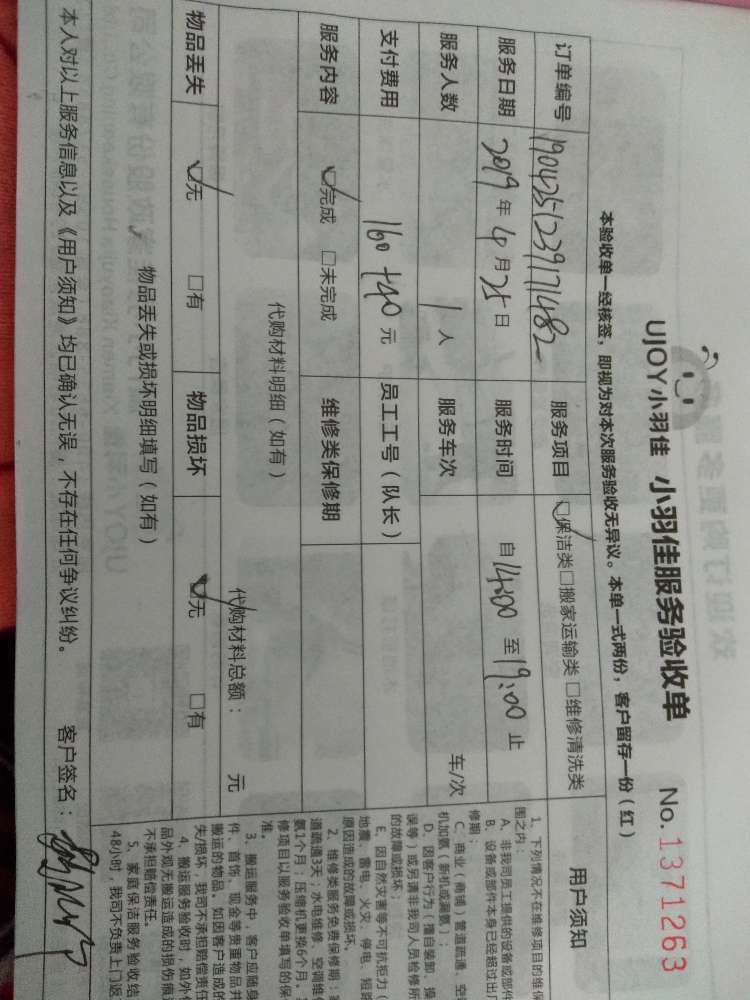 UJOY小羽佳 小羽佳服务验收单 No. 1371263
本验收单一经核签，即视为对本次服务验收无异议。本单一式两份，客户留存一份（红）
订单编号 服务项目 ☑保洁类□搬家运输类 □维修清洗类
服务日期 2019 年 4 月 25 日 服务时间 自 14:00 至 19:00 止
服务人数 1 人 服务车次 车/次
支付费用 160+40 元 员工工号（队长）
服务内容 ☑完成 □未完成 维修类保修期
代购材料明细（如有） 代购材料总额： 元
物品丢失 ☑无 □有 物品损坏 ☑无 □有
物品丢失或损坏明细填写（如有）
本人对以上服务信息以及《用户须知》均已确认无误，不存在任何争议纠纷。 客户签名：
用户须知
1、下列情况不在维修项目的维保
围之内：
A、非我司员工提供的设备或部件
B、设备或部件本身已经超过出厂
修期；
C、商业（商铺）管道疏通、空
机加氨（新机或漏氨）；
D、因客户行为（擅自装卸、操
误等）或另请非我司人员检修所
的故障或损坏；
E、因自然灾害等不可抗拒力（
地震、雷电、火灾、停电、短路
原因造成的故障或损坏。
2、维修类服务免费保修期：
道疏通3天；水电维修、空调维
氨1个月；压缩机更换6个月。
修项目以服务验收单填写的保
准。
3、搬运服务中，客户应随身
件、首饰、现金等贵重物品并
搬运的物品。如因客户造成的
失/损坏，我司不承担赔偿责任
4、搬运服务验收时，如外包
品外观无搬运造成的损伤痕迹
不承担赔偿责任。
5、家庭保洁服务验收结
48小时，我司不负责上门返